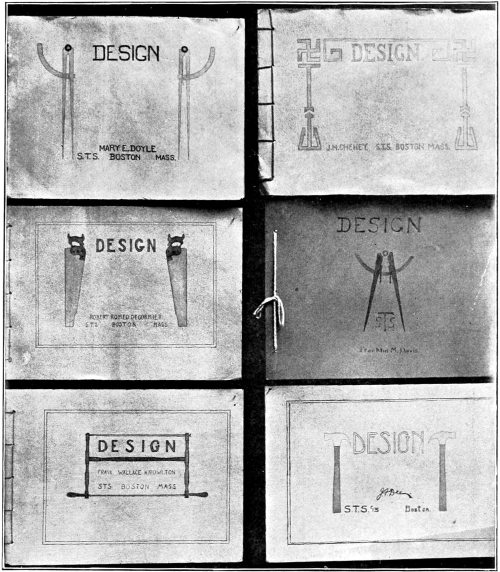 DESIGN
MARY E. DOYLE
S.T.S. BOSTON MASS.
DESIGN
J.H. CHENEY. S.T.S. BOSTON MASS.
DESIGN
ROBERT ROMEO DECORMIER
STS BOSTON MASS.
DESIGN
STS
M. Davis
DESIGN
FRANK WALLACE KNOWLTON
STS BOSTON MASS
DESIGN
S.T.S. Boston